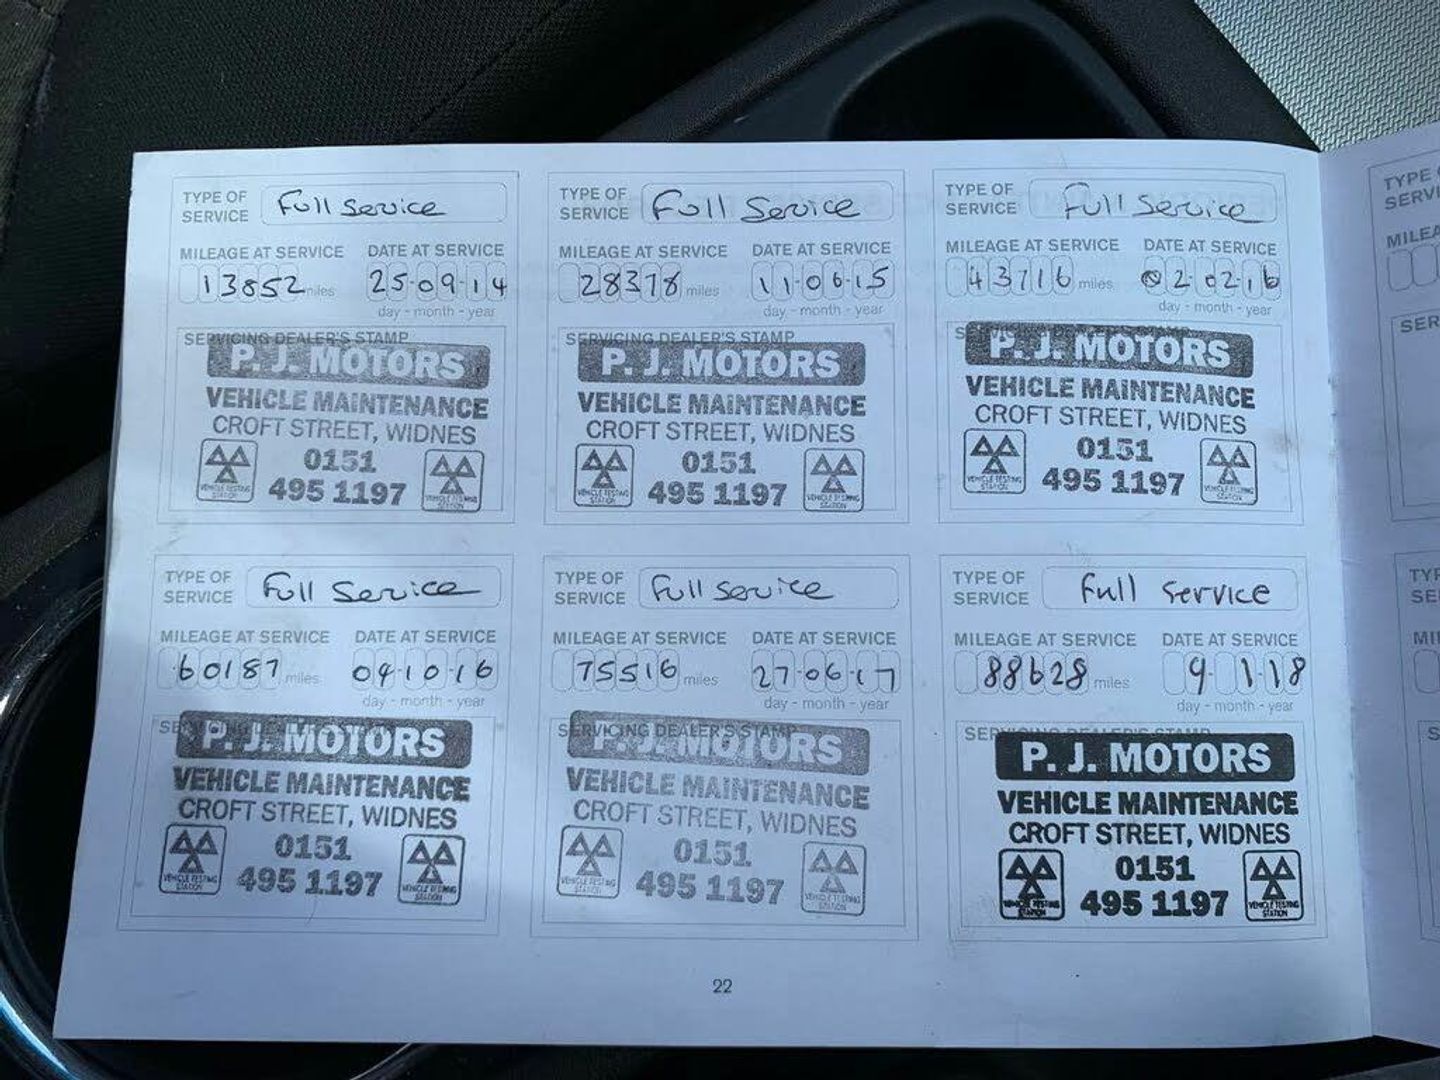 TYPE OF SERVICE Full Service
MILEAGE AT SERVICE DATE AT SERVICE
13852 miles 25-09-14
day - month - year
SERVICING DEALER'S STAMP
P. J. MOTORS
VEHICLE MAINTENANCE
CROFT STREET, WIDNES
0151
495 1197
VEHICLE TESTING STATION VEHICLE TESTING STATION
TYPE OF SERVICE Full Service
MILEAGE AT SERVICE DATE AT SERVICE
28378 miles 11-06-15
day - month - year
SERVICING DEALER'S STAMP
P. J. MOTORS
VEHICLE MAINTENANCE
CROFT STREET, WIDNES
0151
495 1197
VEHICLE TESTING STATION VEHICLE TESTING STATION
TYPE OF SERVICE Full Service
MILEAGE AT SERVICE DATE AT SERVICE
43716 miles 02-02-16
day - month - year
P. J. MOTORS
VEHICLE MAINTENANCE
CROFT STREET, WIDNES
0151
495 1197
VEHICLE TESTING STATION VEHICLE TESTING STATION
TYPE OF SERVICE Full Service
MILEAGE AT SERVICE DATE AT SERVICE
60187 miles 04-10-16
day - month - year
P. J. MOTORS
VEHICLE MAINTENANCE
CROFT STREET, WIDNES
0151
495 1197
VEHICLE TESTING STATION VEHICLE TESTING STATION
TYPE OF SERVICE Full Service
MILEAGE AT SERVICE DATE AT SERVICE
75516 miles 27-06-17
day - month - year
SERVICING DEALER'S STAMP
P. J. MOTORS
VEHICLE MAINTENANCE
CROFT STREET, WIDNES
0151
495 1197
VEHICLE TESTING STATION VEHICLE TESTING STATION
TYPE OF SERVICE Full Service
MILEAGE AT SERVICE DATE AT SERVICE
88628 miles 9-1-18
day - month - year
SERVICING DEALER'S STAMP
P. J. MOTORS
VEHICLE MAINTENANCE
CROFT STREET, WIDNES
0151
495 1197
VEHICLE TESTING STATION VEHICLE TESTING STATION
22